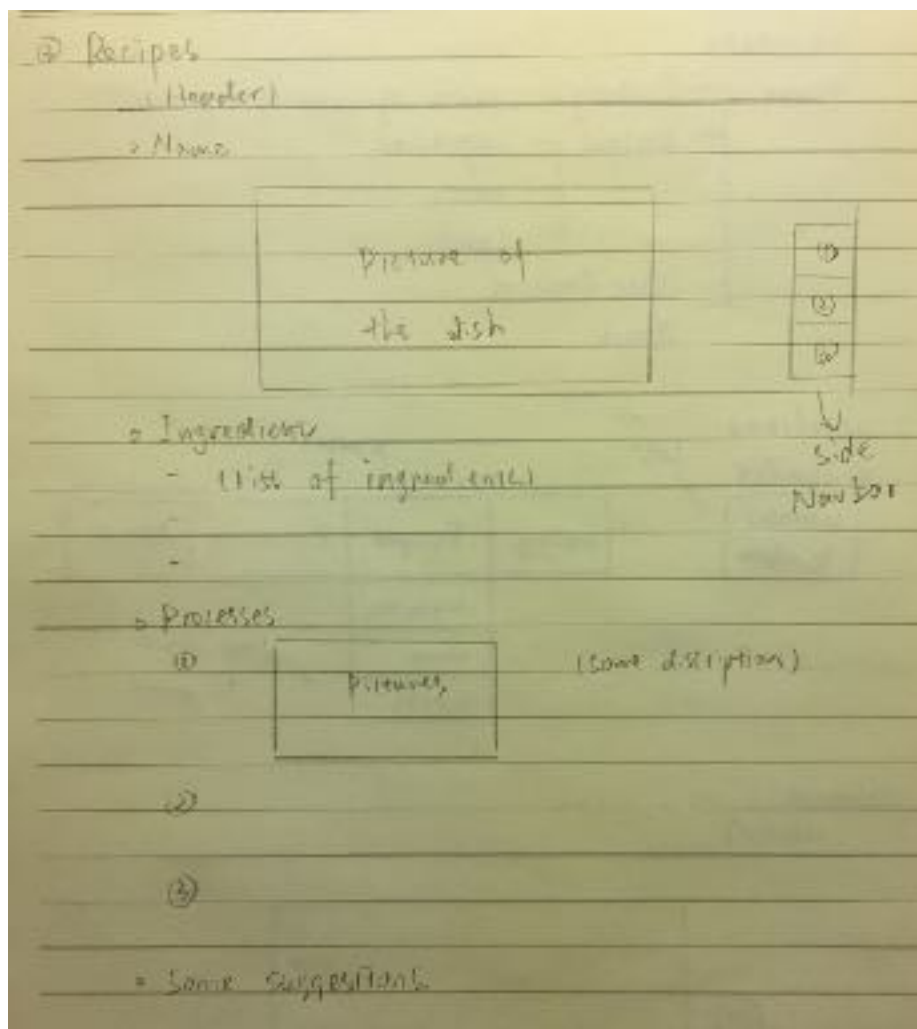 ③ Recipes
(Header)
Name
Picture of
the dish
①
②
③
side
Navbar
Ingredients
- (List of ingredients)
-
-
Processes
① Pictures, (some discription)
②
③
Some suggestions